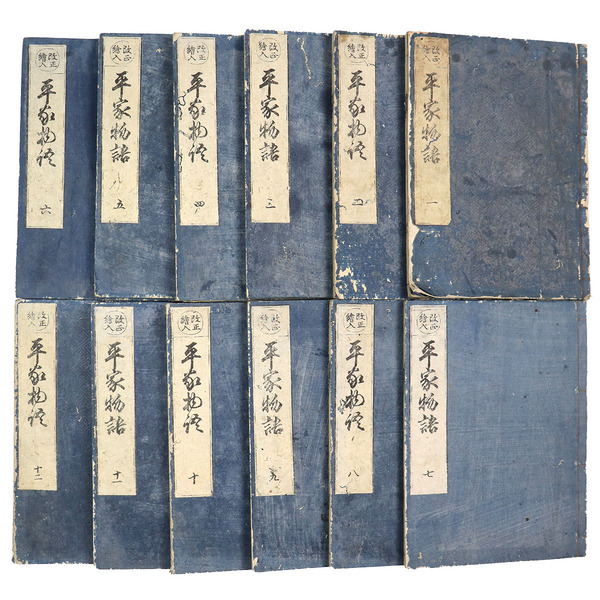 改正
繪入
平家物語
一
改正
繪入
平家物語
二
改正
繪入
平家物語
三
改正
繪入
平家物語
四
改正
繪入
平家物語
五
改正
繪入
平家物語
六
改正
繪入
平家物語
七
改正
繪入
平家物語
八
改正
繪入
平家物語
九
改正
繪入
平家物語
十
改正
繪入
平家物語
十一
改正
繪入
平家物語
十二